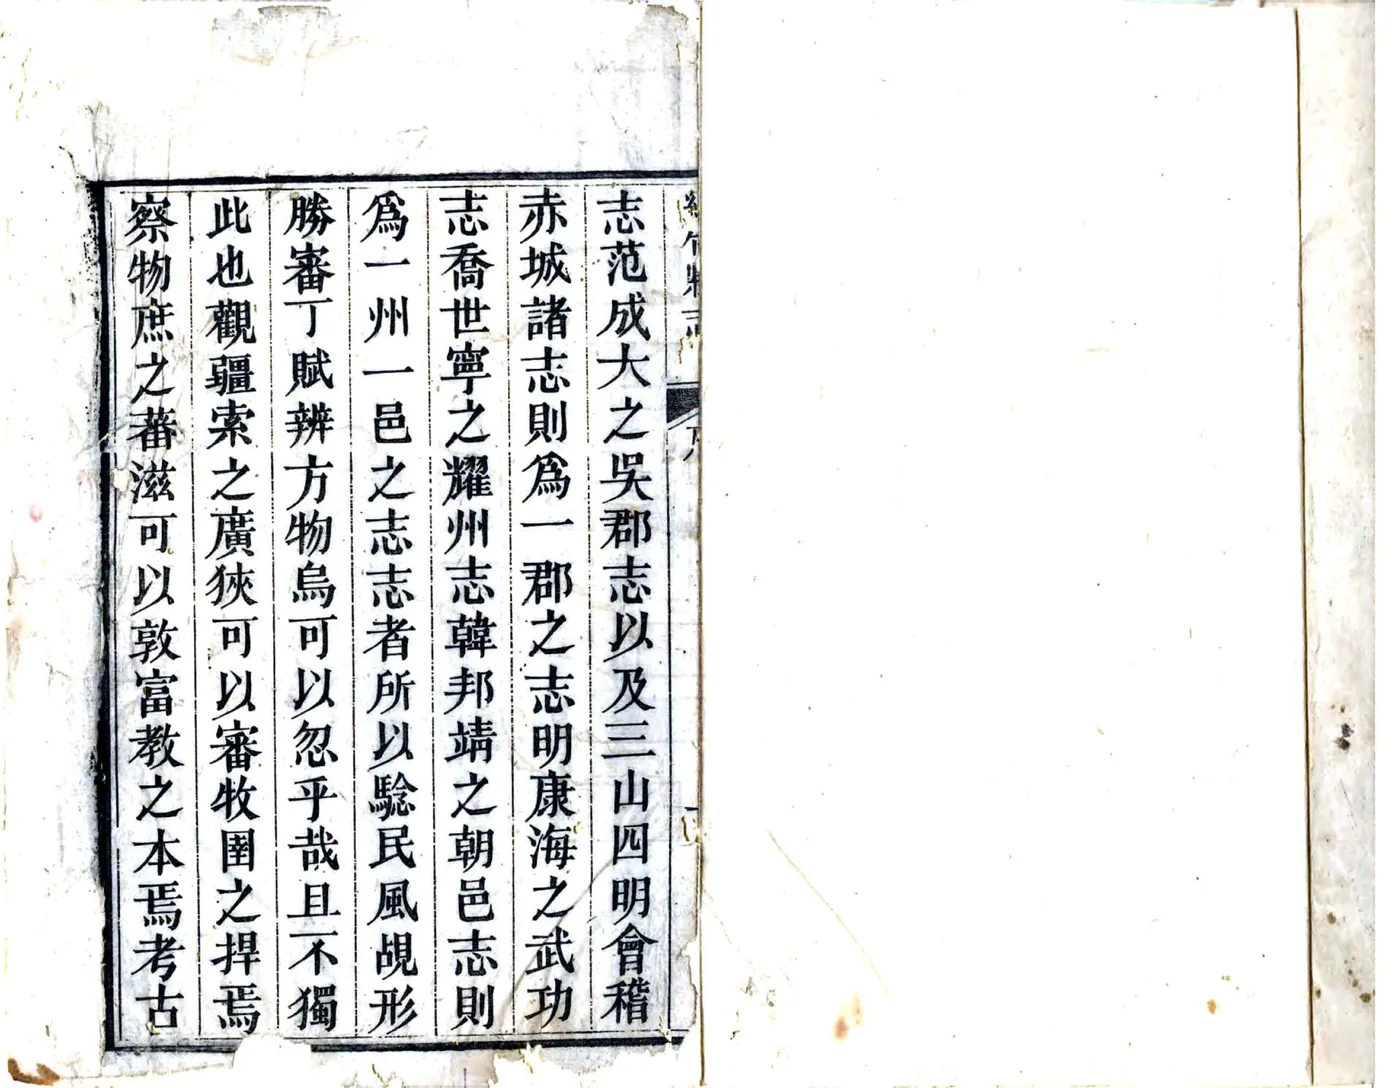 縣志
序
志范成大之吳郡志以及三山四明會稽
赤城諸志則爲一郡之志明康海之武功
志喬世寧之耀州志韓邦靖之朝邑志則
爲一州一邑之志志者所以騐民風覘形
勝審丁賦辨方物烏可以忽乎哉且不獨
此也觀疆索之廣狹可以審牧圉之捍焉
察物庶之蕃滋可以敦富教之本焉考古